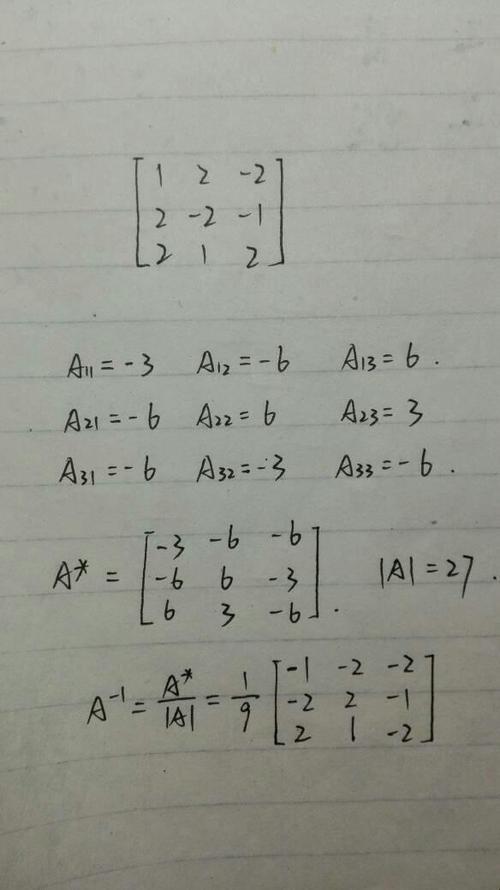 [1 2 -2
2 -2 -1
2 1 2]
A₁₁ = -3 A₁₂ = -6 A₁₃ = 6 .
A₂₁ = -6 A₂₂ = 6 A₂₃ = 3
A₃₁ = -6 A₃₂ = -3 A₃₃ = -6 .
A* = [-3 -6 -6
-6 6 -3
6 3 -6] . |A| = 27 .
A⁻¹ = A*/|A| = 1/9 [-1 -2 -2
-2 2 -1
2 1 -2]